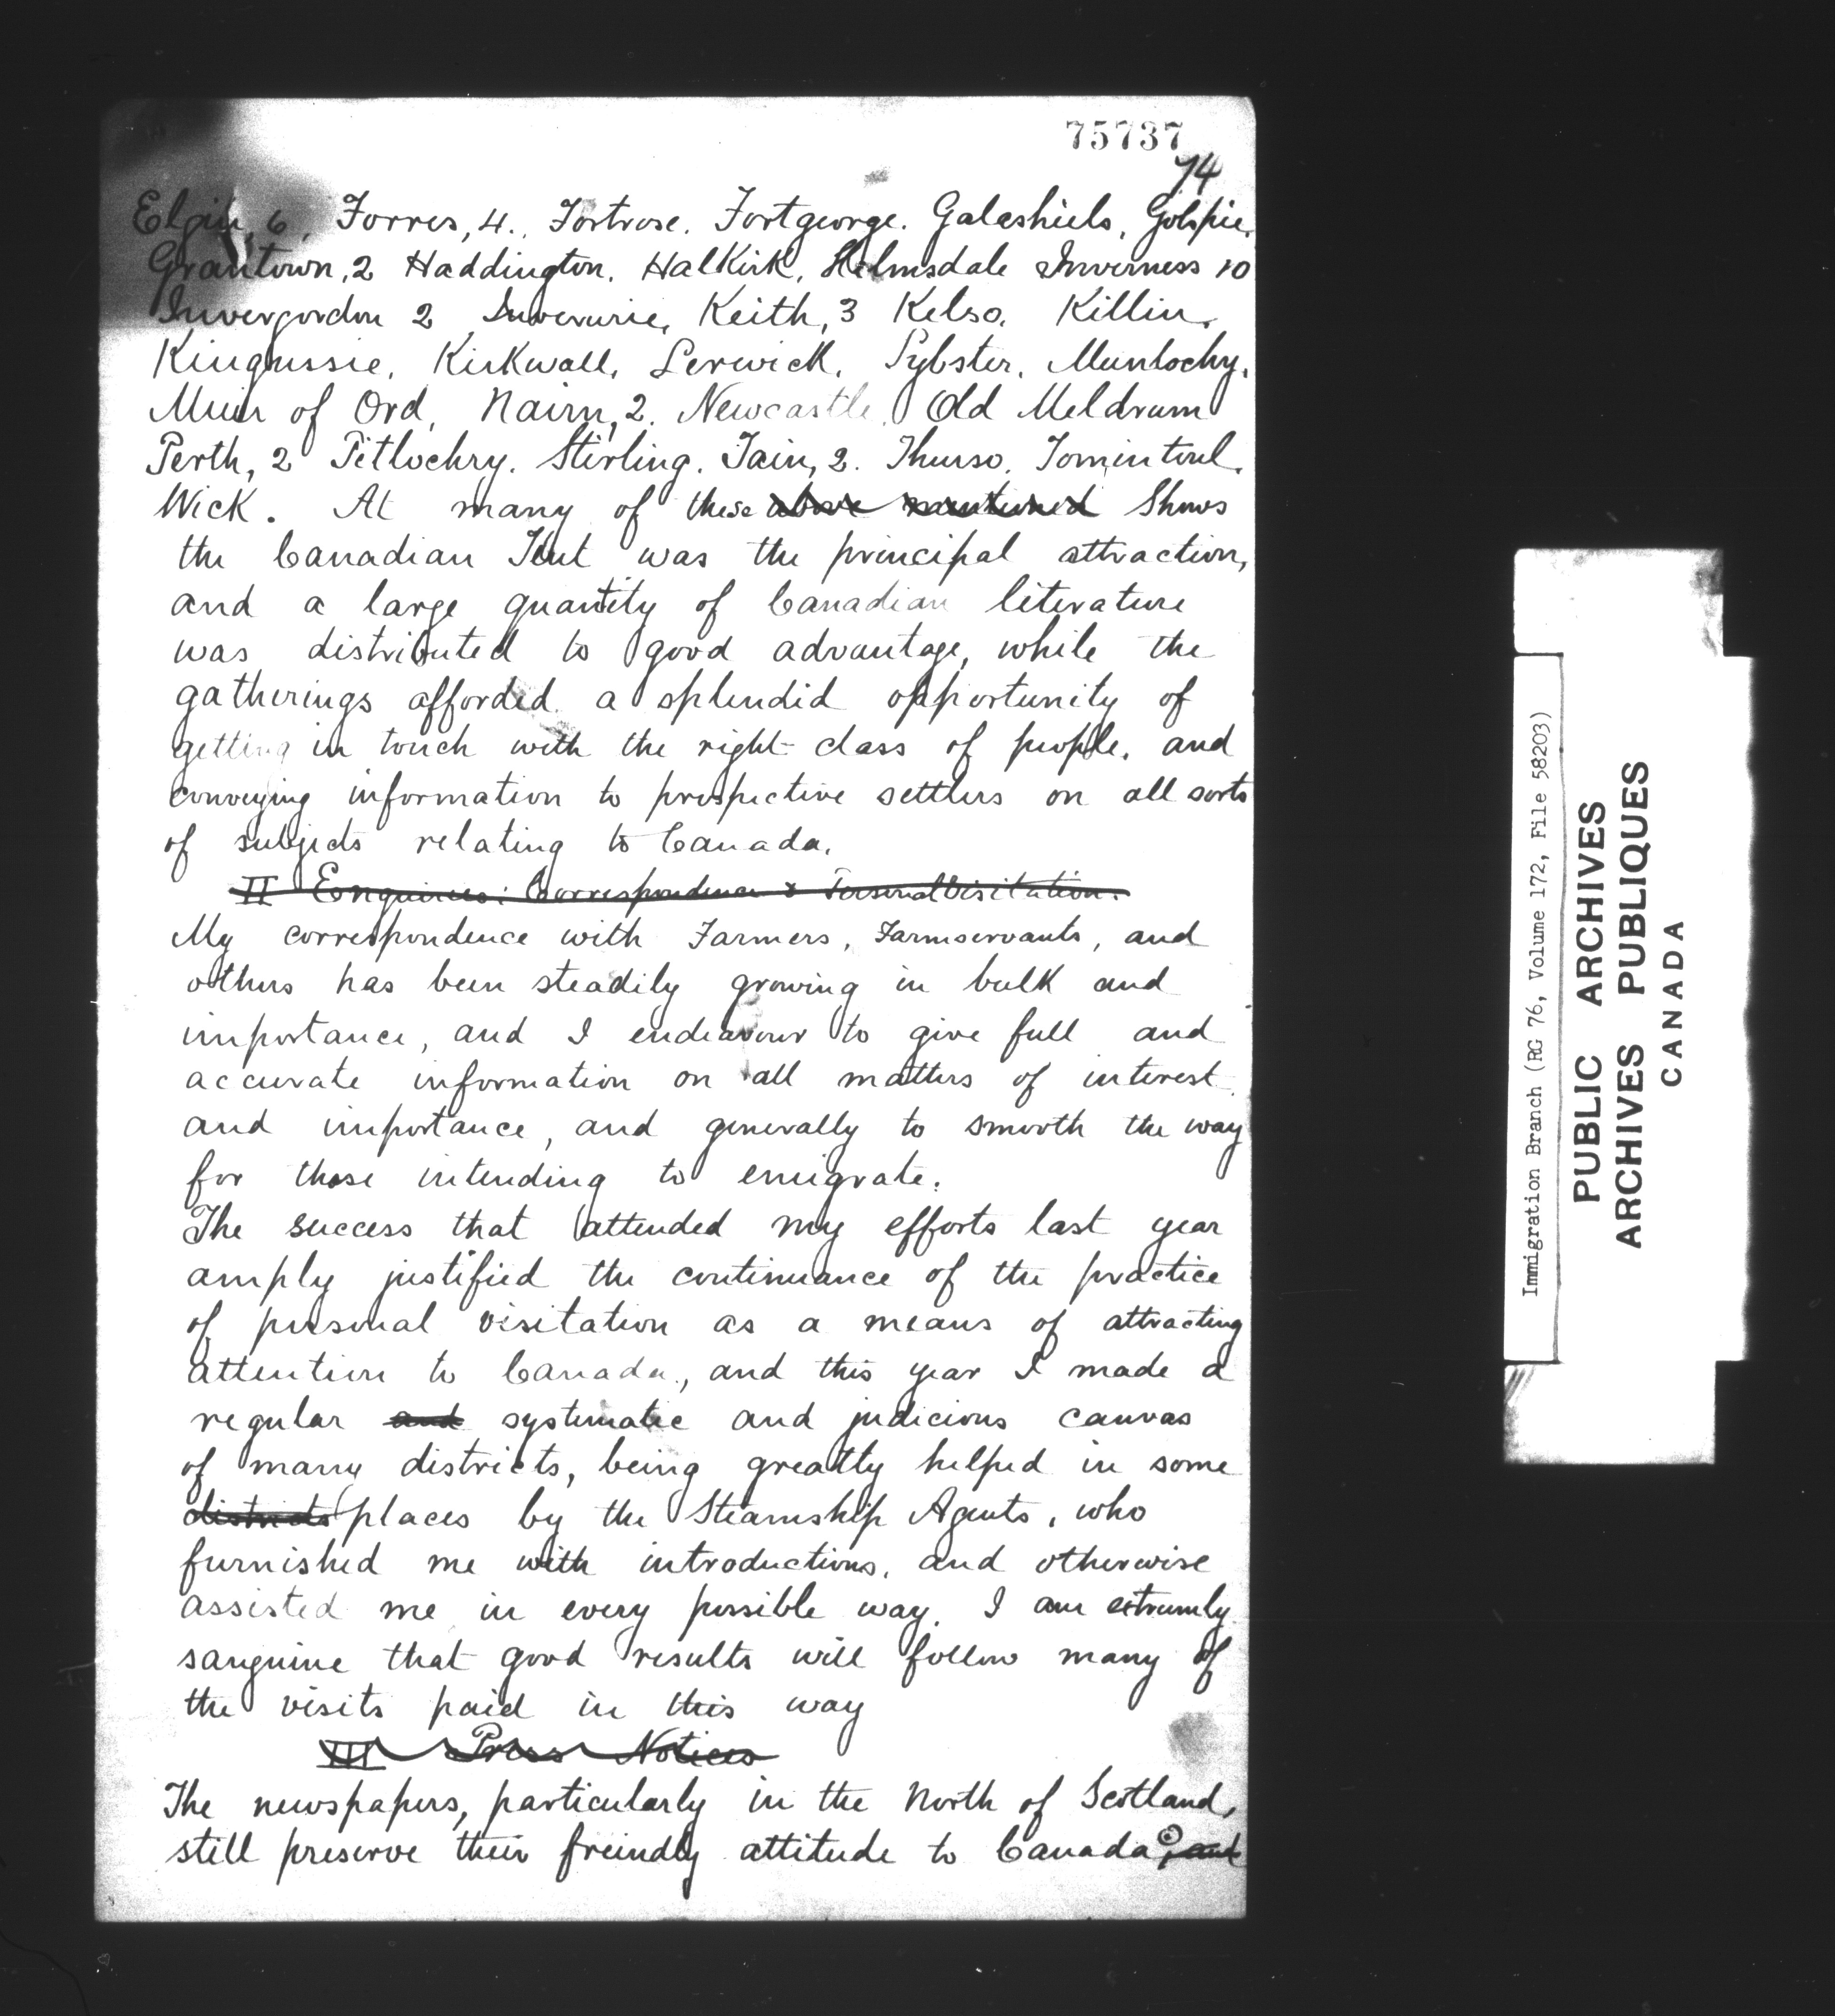 75737
74
Elgin, 6, Forres, 4., Fortrose. Fortgeorge. Galashiels, Golspie.
Grantown, 2 Haddington. Halkirk. Helmsdale Inverness 10
Invergordon 2 Inverurie, Keith, 3 Kelso. Killin.
Kingussie. Kirkwall, Lerwick, Lybster. Munlochy.
Muir of Ord, Nairn, 2. Newcastle. Old Meldrum
Perth, 2 Pitlochry. Stirling. Tain, 2. Thurso. Tomintoul.
Wick. At many of these above mentioned Shows
the Canadian Tent was the principal attraction,
and a large quantity of Canadian literature
was distributed to good advantage, while the
gatherings afforded a splendid opportunity of
getting in touch with the right class of people, and
conveying information to prospective settlers on all sorts
of subjects relating to Canada.
II Enquiries: Correspondence & Personal Visitation.
My correspondence with Farmers, Farmservants, and
others has been steadily growing in bulk and
importance, and I endeavour to give full and
accurate information on all matters of interest
and importance, and generally to smooth the way
for those intending to emigrate.
The success that attended my efforts last year
amply justified the continuance of the practice
of personal visitation as a means of attracting
attention to Canada, and this year I made a
regular and systematic and judicious canvas
of many districts, being greatly helped in some
districts places by the Steamship Agents, who
furnished me with introductions, and otherwise
assisted me in every possible way. I am extremely
sanguine that good results will follow many of
the visits paid in this way
III Press Notices
The newspapers, particularly in the North of Scotland,
still preserve their freindly attitude to Canada, and
Immigration Branch (RG 76, Volume 172, File 58203)
PUBLIC ARCHIVES
ARCHIVES PUBLIQUES
CANADA